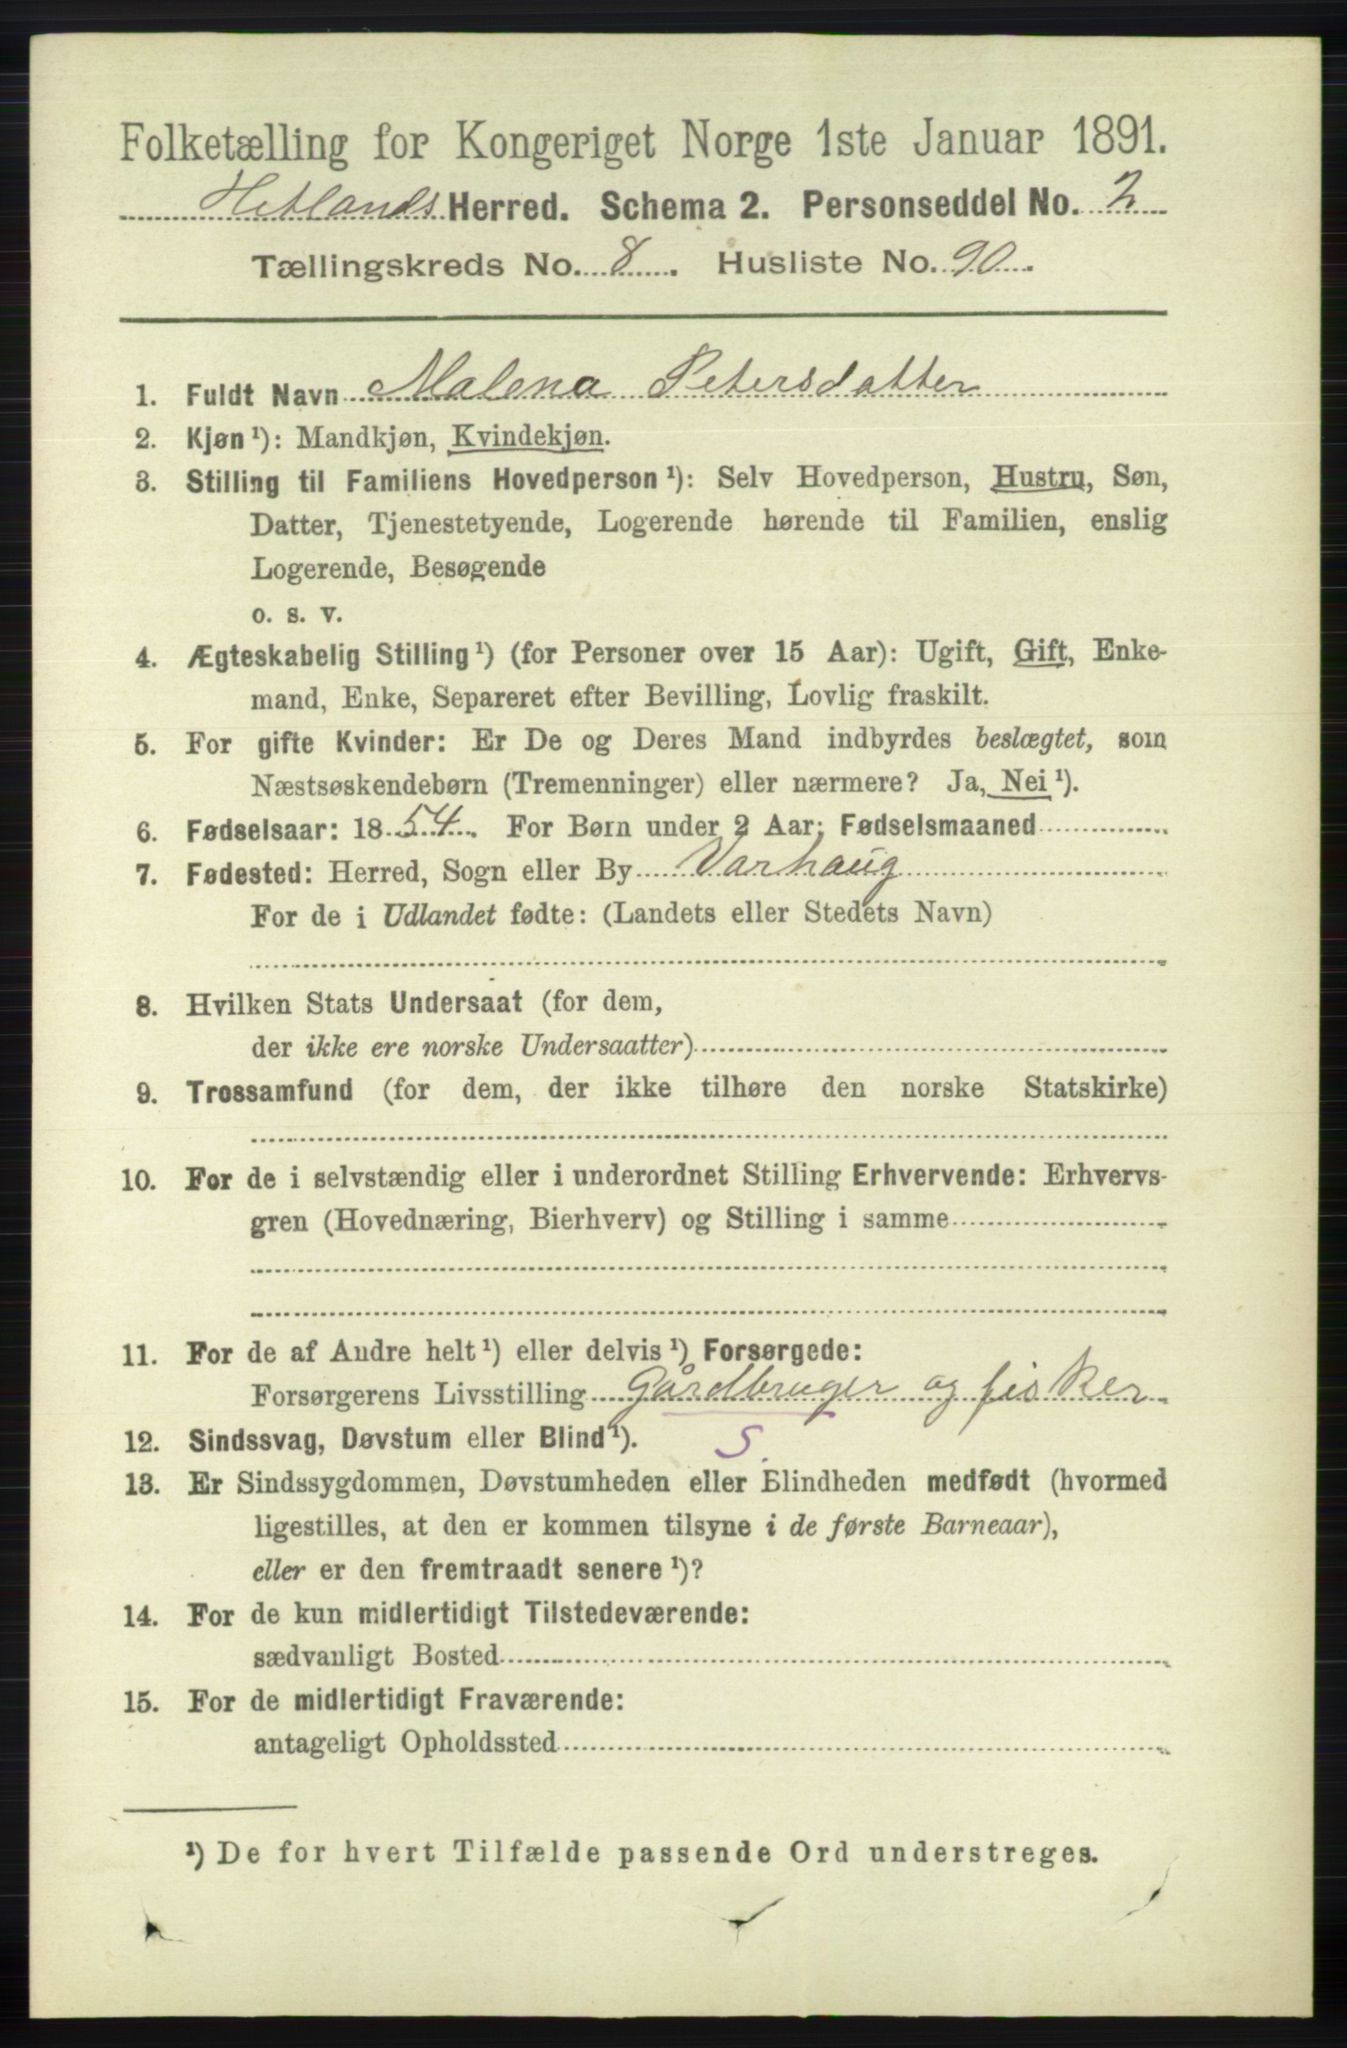 Folketælling for Kongeriget Norge 1ste Januar 1891.
Hetlands Herred. Schema 2. Personseddel No. 2
Tællingskreds No. 8. Husliste No. 90.
1. Fuldt Navn Malena Petersdatter
2. Kjøn ¹): Mandkjøn, Kvindekjøn.
3. Stilling til Familiens Hovedperson ¹): Selv Hovedperson, Hustru, Søn,
Datter, Tjenestetyende, Logerende hørende til Familien, enslig
Logerende, Besøgende
o. s. v.
4. Ægteskabelig Stilling ¹) (for Personer over 15 Aar): Ugift, Gift, Enke-
mand, Enke, Separeret efter Bevilling, Lovlig fraskilt.
5. For gifte Kvinder: Er De og Deres Mand indbyrdes beslægtet, som
Næstsøskendebørn (Tremenninger) eller nærmere? Ja, Nei ¹).
6. Fødselsaar: 1854. For Børn under 2 Aar: Fødselsmaaned
7. Fødested: Herred, Sogn eller By Varhaug
For de i Udlandet fødte: (Landets eller Stedets Navn)
8. Hvilken Stats Undersaat (for dem,
der ikke ere norske Undersaatter)
9. Trossamfund (for dem, der ikke tilhøre den norske Statskirke)
10. For de i selvstændig eller i underordnet Stilling Erhvervende: Erhvervs-
gren (Hovednæring, Bierhverv) og Stilling i samme
11. For de af Andre helt ¹) eller delvis ¹) Forsørgede:
Forsørgerens Livsstilling Gårdbruger og fisker
12. Sindssvag, Døvstum eller Blind ¹). S.
13. Er Sindssygdommen, Døvstumheden eller Blindheden medfødt (hvormed
ligestilles, at den er kommen tilsyne i de første Barneaar),
eller er den fremtraadt senere ¹)?
14. For de kun midlertidigt Tilstedeværende:
sædvanligt Bosted
15. For de midlertidigt Fraværende:
antageligt Opholdssted
¹) De for hvert Tilfælde passende Ord understreges.